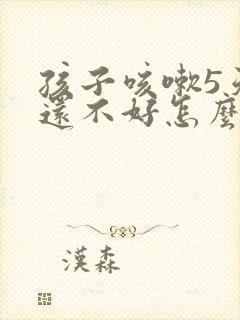 孩子咳嗽5天
還不好怎麼
漢森